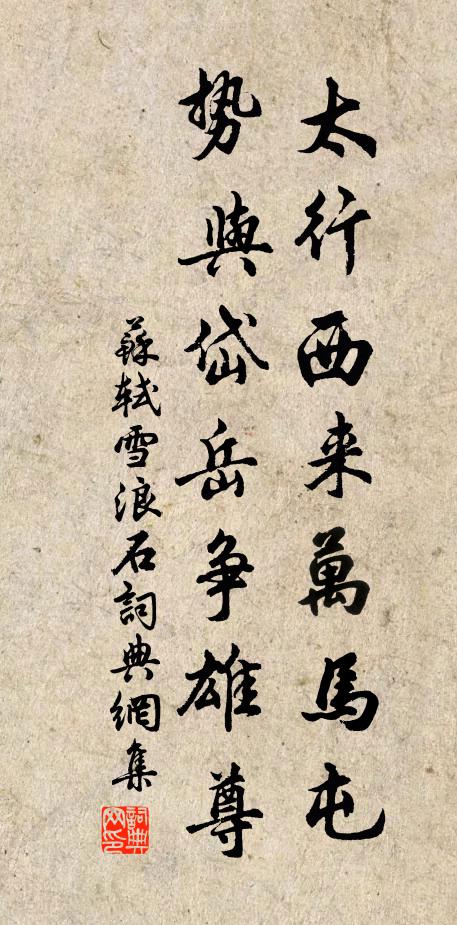 太行西来萬馬屯
勢與岱岳争雄尊
蘇軾雪浪石詞典網集
詞典网印